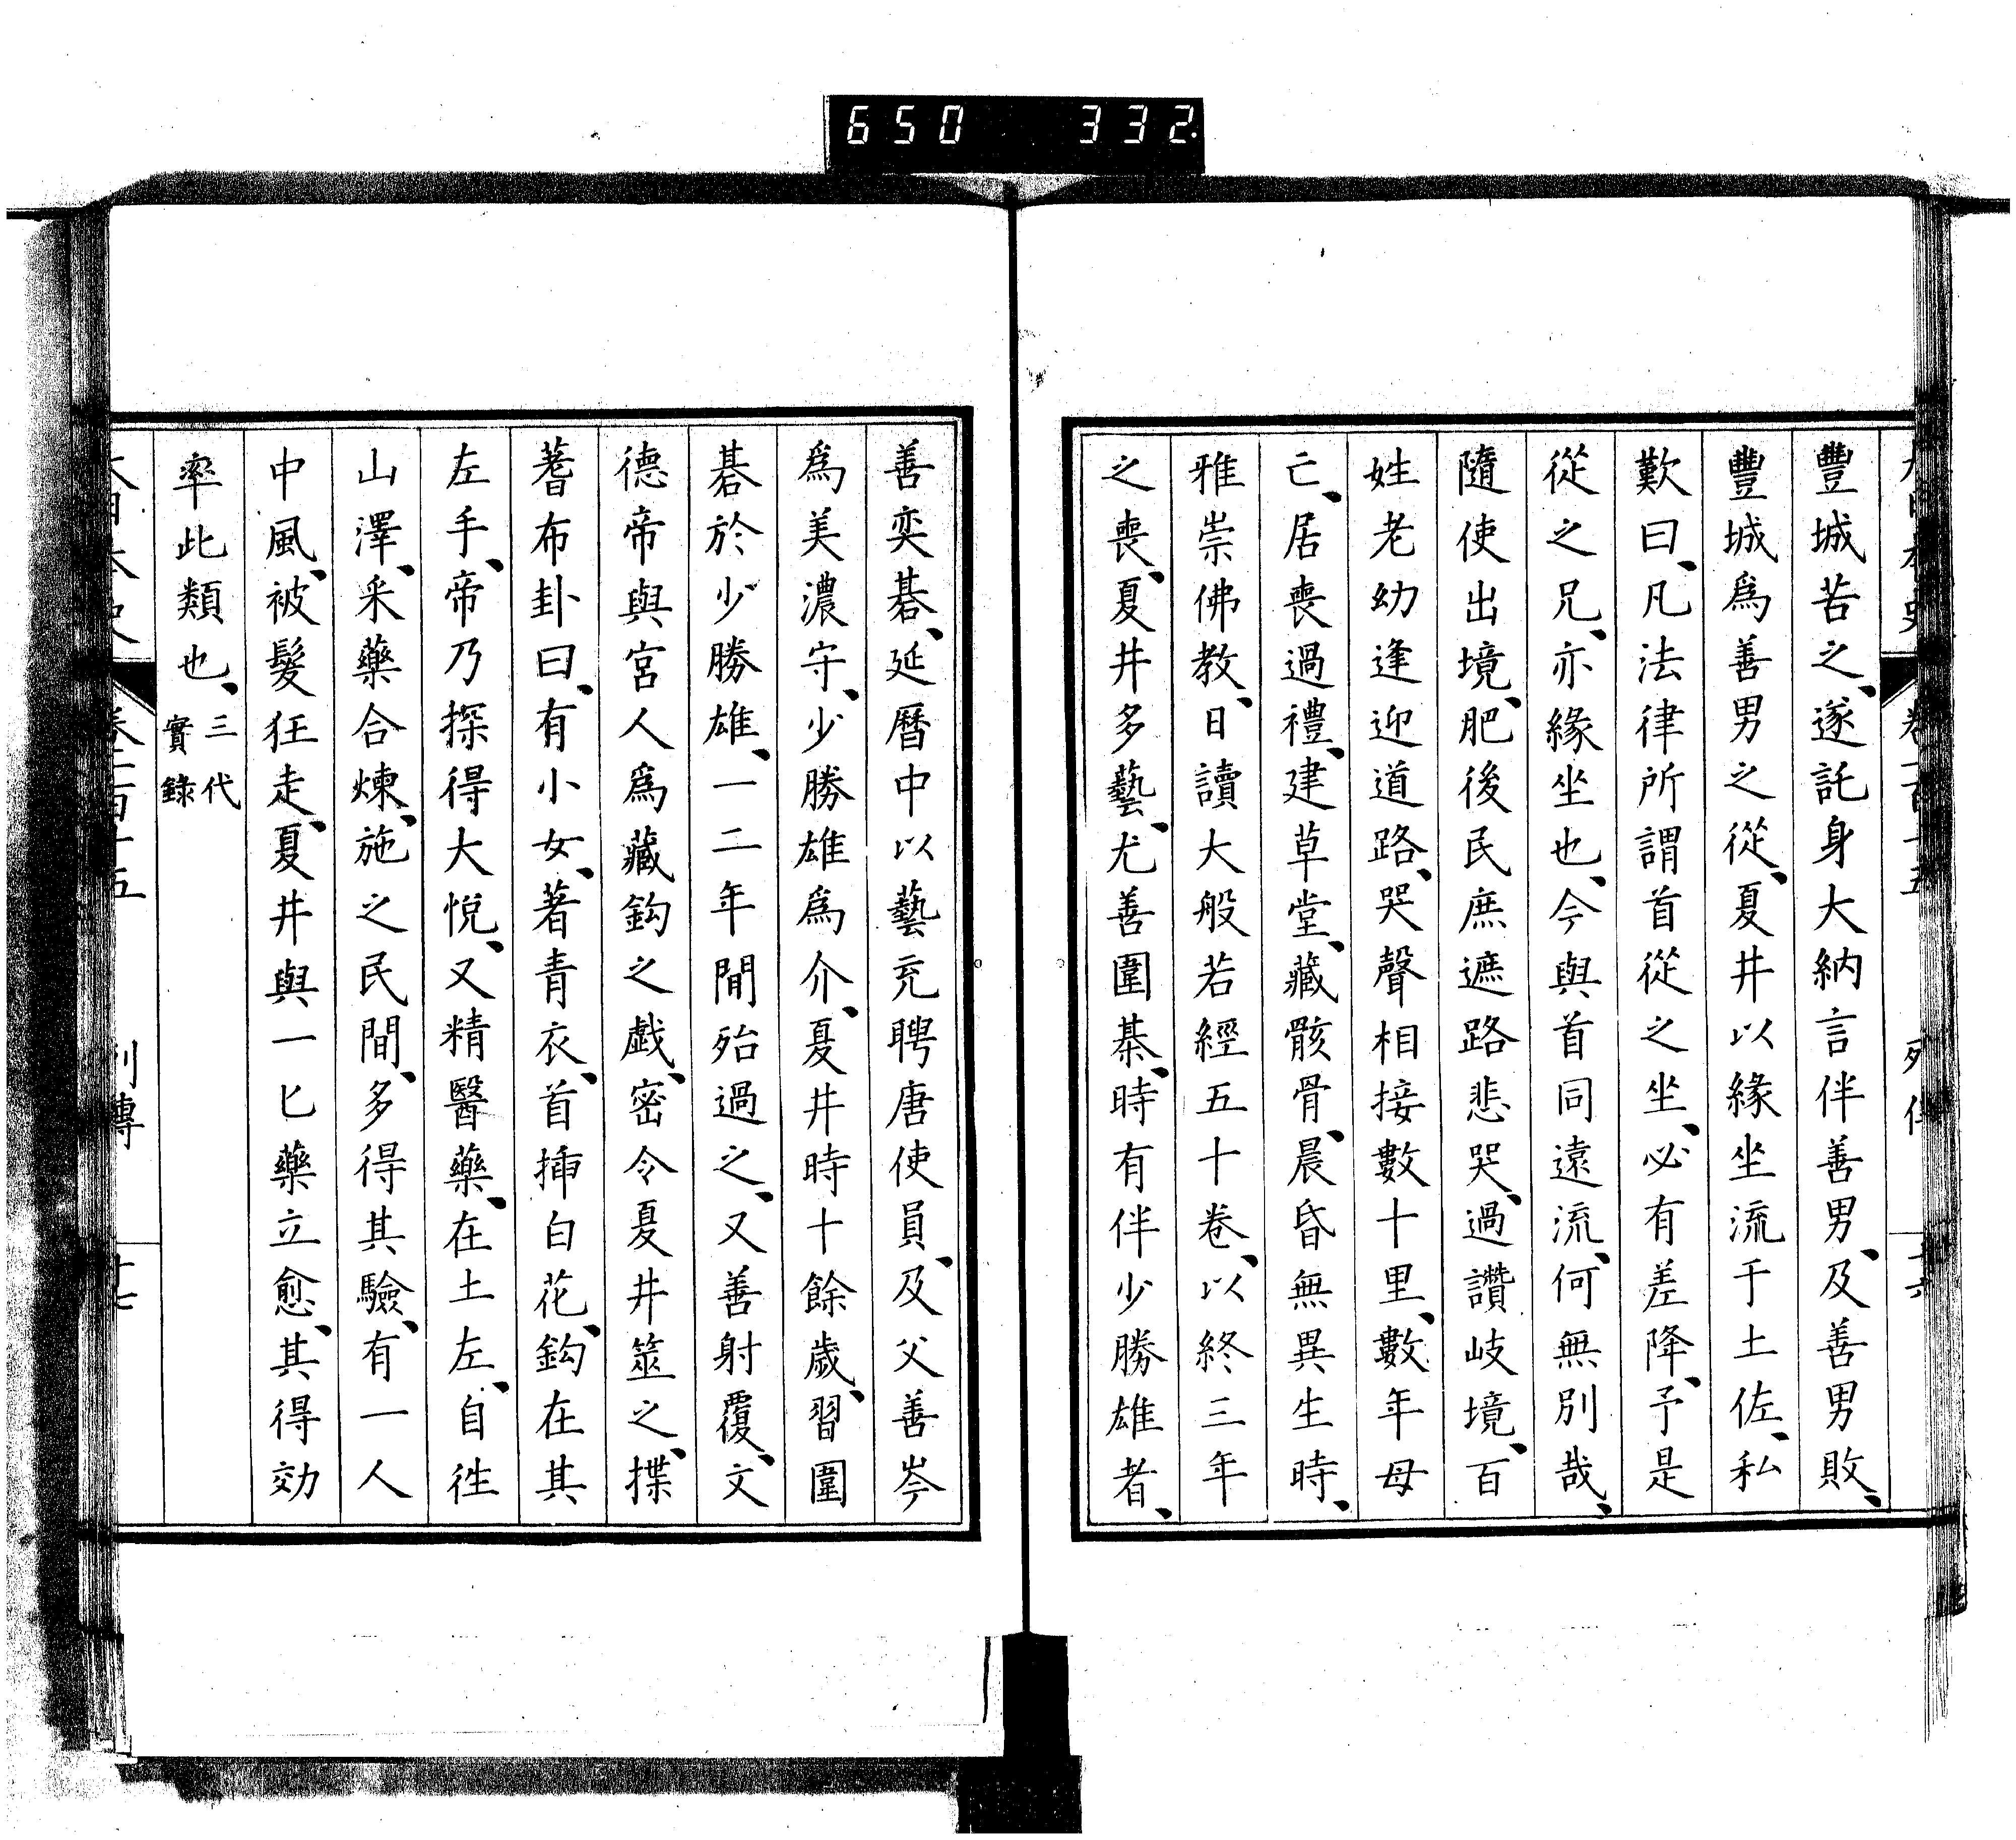 650 332
豐城苦之、遂託身大納言伴善男、及善男敗、
豐城爲善男之從、夏井以緣坐流于土佐、私
歎曰、凡法律所謂首從之坐、必有差降、予是
從之兄、亦緣坐也、今與首同遠流、何無別哉、
隨使出境、肥後民庶遮路悲哭、過讚岐境、百
姓老幼逢迎道路、哭聲相接數十里、數年母
亡、居喪過禮、建草堂、藏骸骨、晨昏無異生時、
雅崇佛教、日讀大般若經五十卷、以終三年
之喪、夏井多藝、尤善圍棊、時有伴少勝雄者、
善奕碁、延曆中以藝充聘唐使員、及父善岑
爲美濃守、少勝雄爲介、夏井時十餘歲、習圍
碁於少勝雄、一二年間殆過之、又善射覆、文
德帝與宮人爲藏鈎之戲、密令夏井筮之、揲
蓍布卦曰、有小女、著青衣、首揷白花、鈎在其
左手、帝乃探得大悅、又精醫藥、在土左、自徃
山澤、采藥合煉、施之民間、多得其驗、有一人
中風、被髮狂走、夏井與一匕藥立愈、其得効
率此類也、三代實錄
大日本史 卷一百十五 列傳 十七